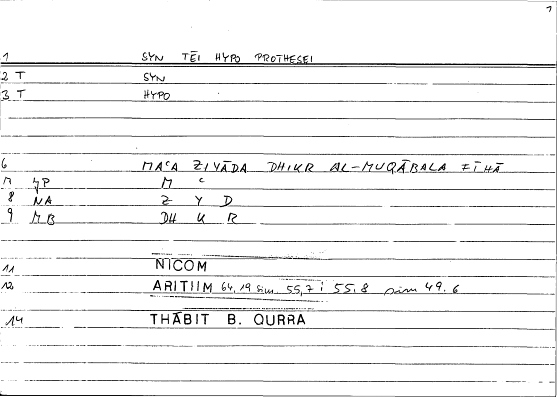 1
1 SYN TĒI HYPO PROTHESEI
2 T SYN
3 T HYPO
6 MAʿA ZIYĀDA DHIKR AL-MUQĀBALA FĪHĀ
7 YP M ʿ
8 NA Z Y D
9 MB DH K R
11 NICOM
12 ARITIIM 64.19 sim. 55,7; 55.8 sim 49.6
14 THĀBIT B. QURRA